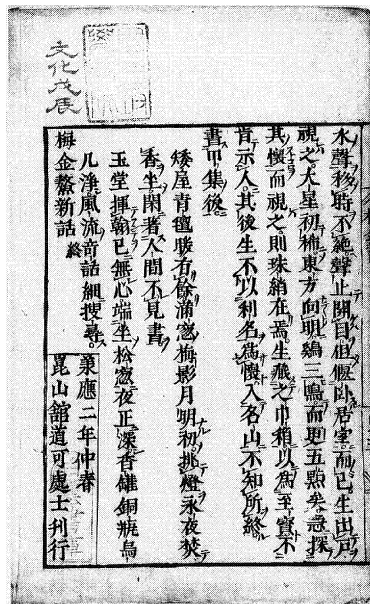 文化戊辰
水聲移時不絕聲止開目但偃臥居室而已生出戶
視之大星初稀東方向明鷄三鳴而更五點矣急探
其懷而視之則珠綃在焉生藏之巾箱以為至寶不
肯示人其後生不以利名為懷入名山不知所終
書甲集後
矮屋青氊暖有餘滿窓梅影月明初挑燈永夜焚
香坐閑著人間不見書
玉堂揮翰已無心端坐松窓夜正深香鑵銅瓶烏
几淨風流奇話細搜尋
梅金鰲新話 終
承應二年仲春
崑山舘道可處士刊行